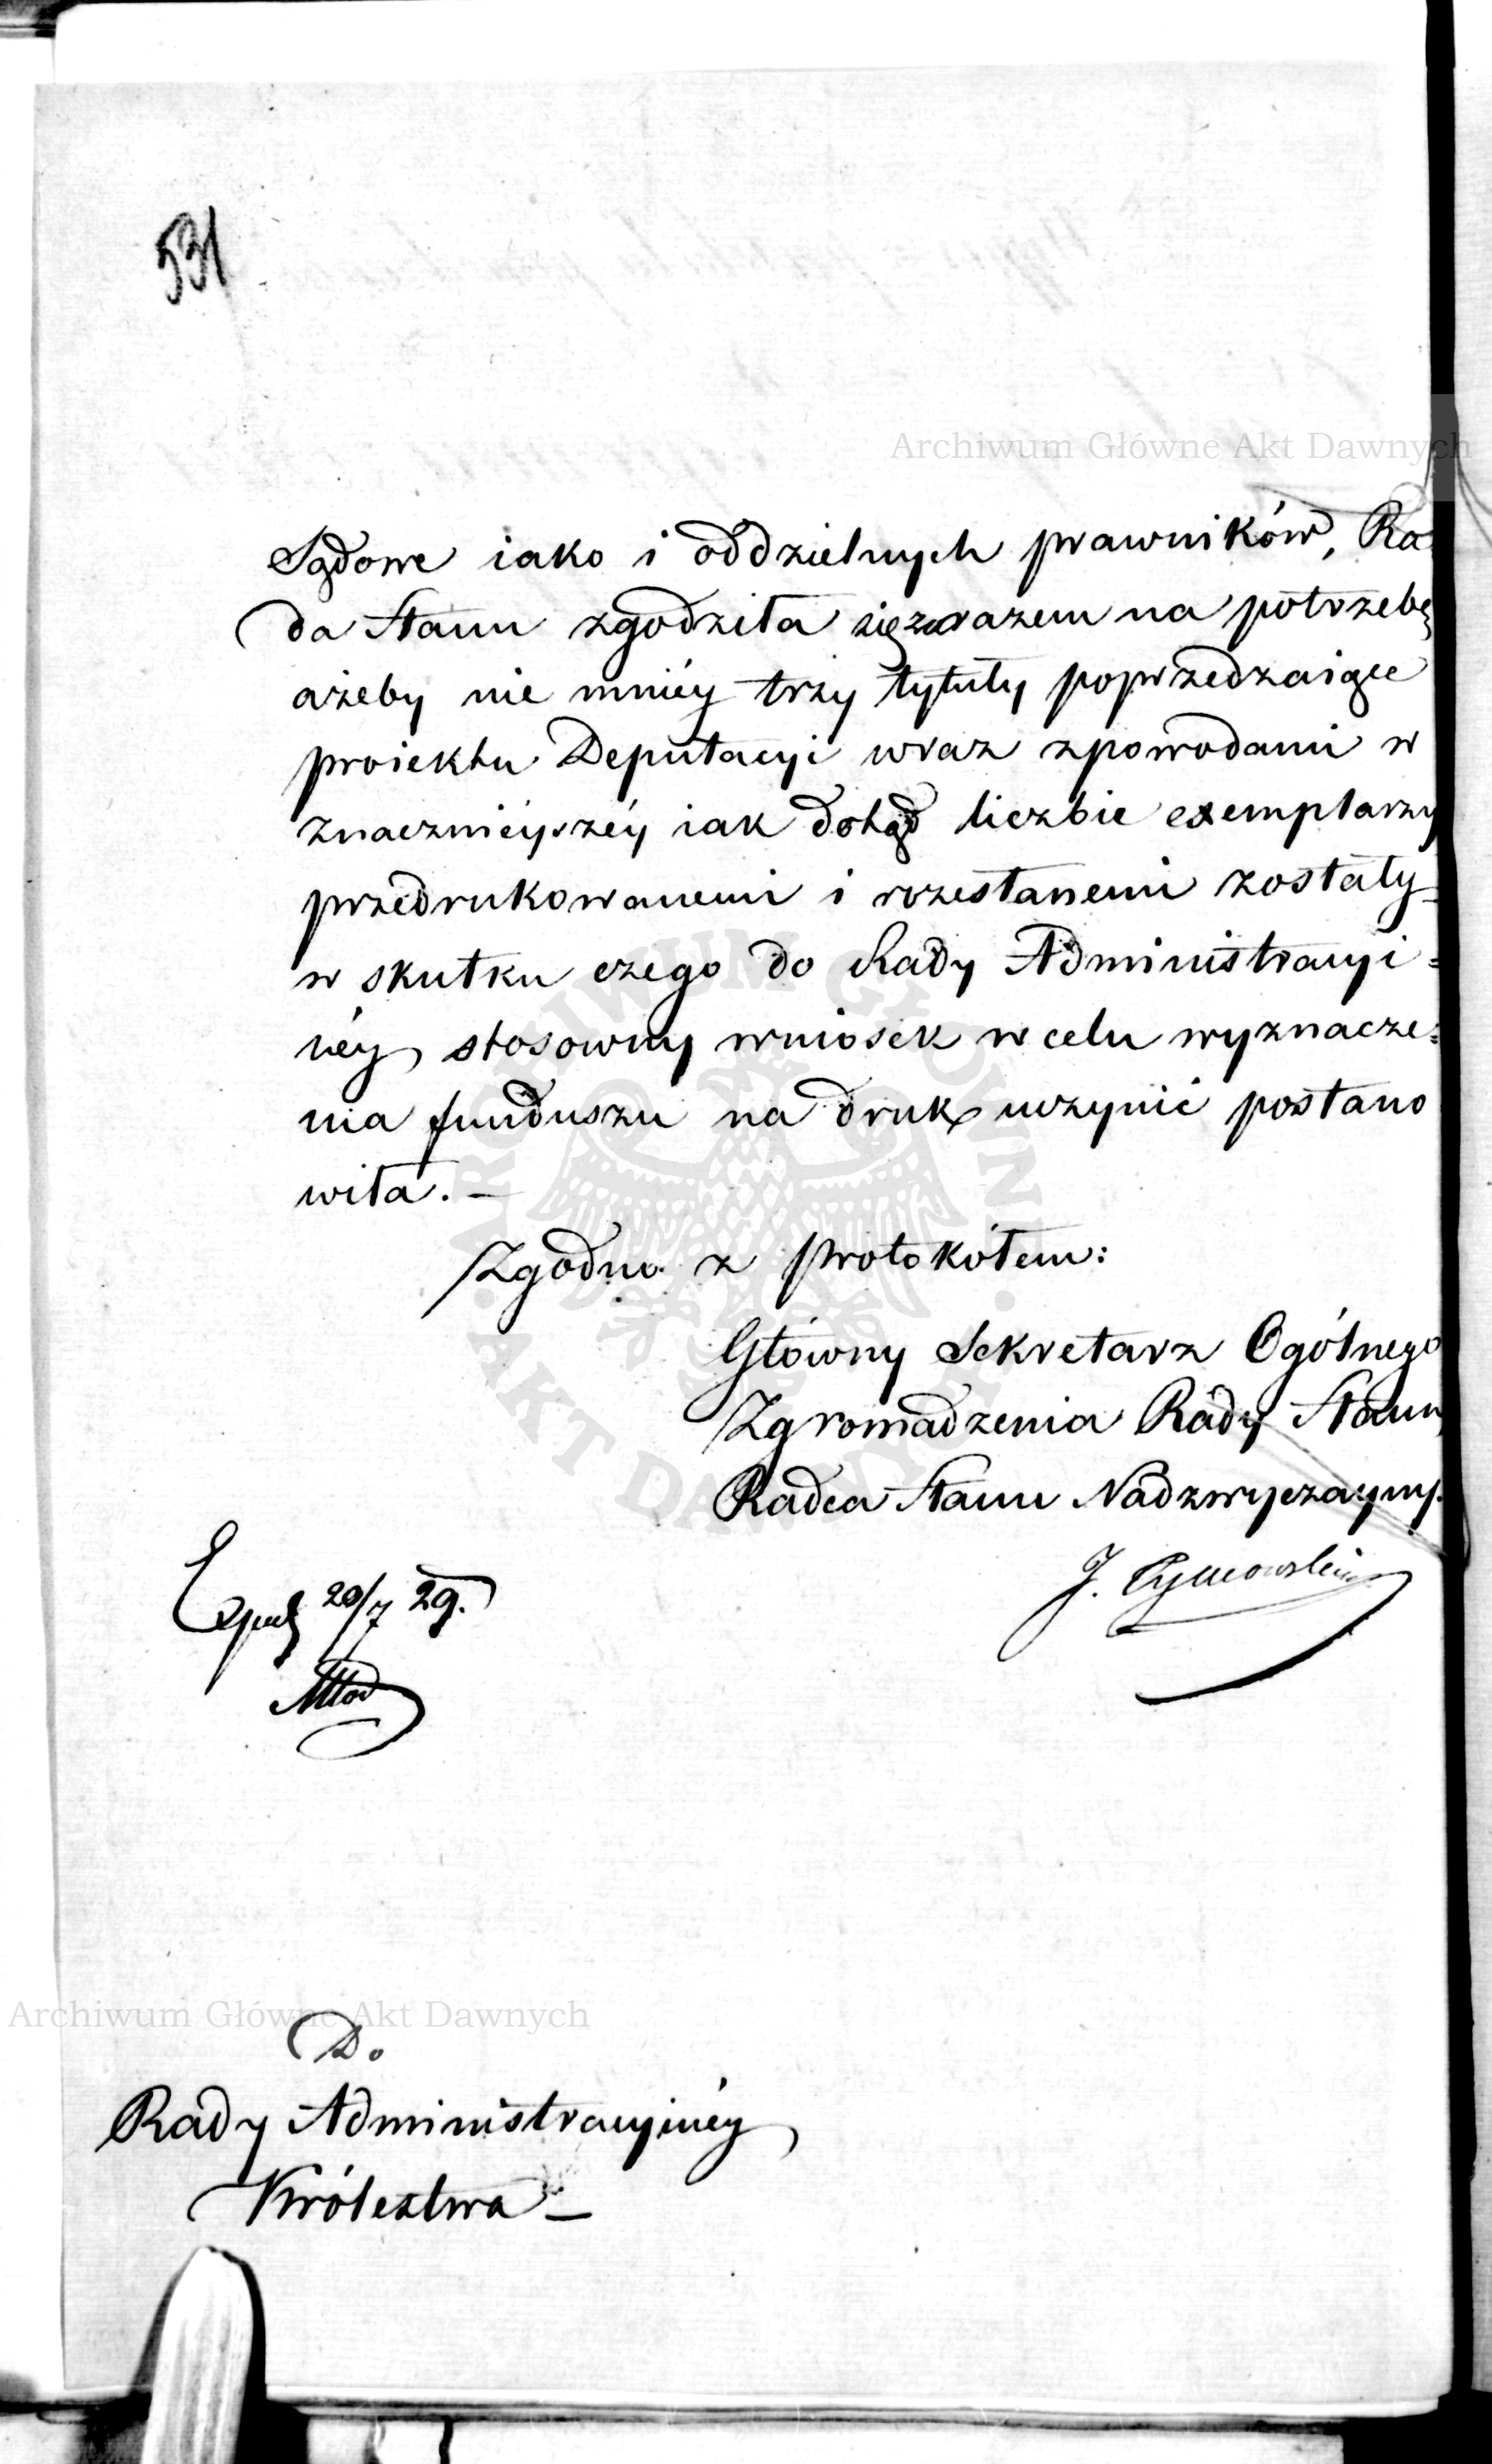 531
Archiwum Główne Akt Dawnych
Sądowe iako i oddzielnych prawników, Ra
da Stanu zgodziła się zarazem na potrzebę
ażeby nie mniéy trzy tytuły poprzedzaiące
proiektu Deputacyi wraz z powodami w
znacznieyszéy iak dotąd liczbie exemplarzy
przedrukowanemi i rozesłanemi zostały
w skutku czego do Rady Administracyi=
néy stosowny wniosek w celu wyznacze=
nia funduszu na druk uczynić postano
wiła. —
Zgodno z protokółem:
Główny Sekretarz Ogólnego
Zgromadzenia Rady Stanu
Radca Stanu Nadzwyczayny.
J. Tymowski
20/7 29.
ARCHIWUM GŁÓWNE AKT DAWNYCH
Archiwum Główne Akt Dawnych
Do
Rady Administracyinéy
Królestwa —